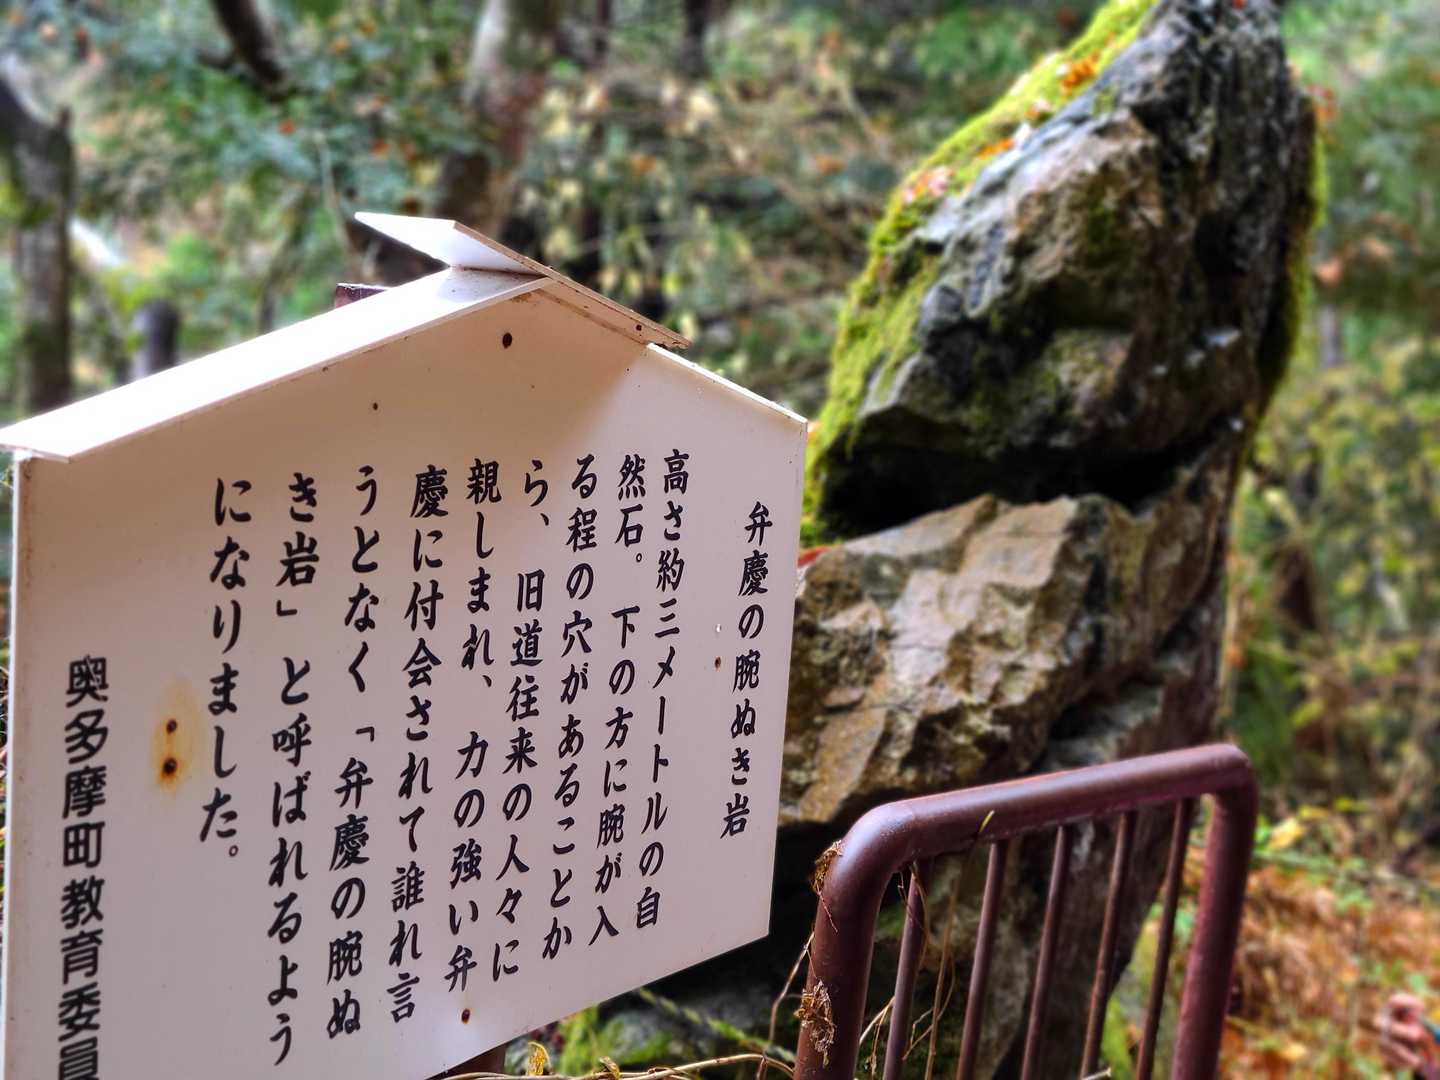 弁慶の腕ぬき岩
高さ約三メートルの自
然石。下の方に腕が入
る程の穴があることか
ら、旧道往来の人々に
親しまれ、力の強い弁
慶に付会されて誰れ言
うとなく「弁慶の腕ぬ
き岩」と呼ばれるよう
になりました。
奥多摩町教育委員